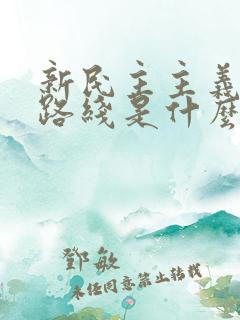 新民主主義
路綫是什麽
鄧敏
未經同意禁止轉載